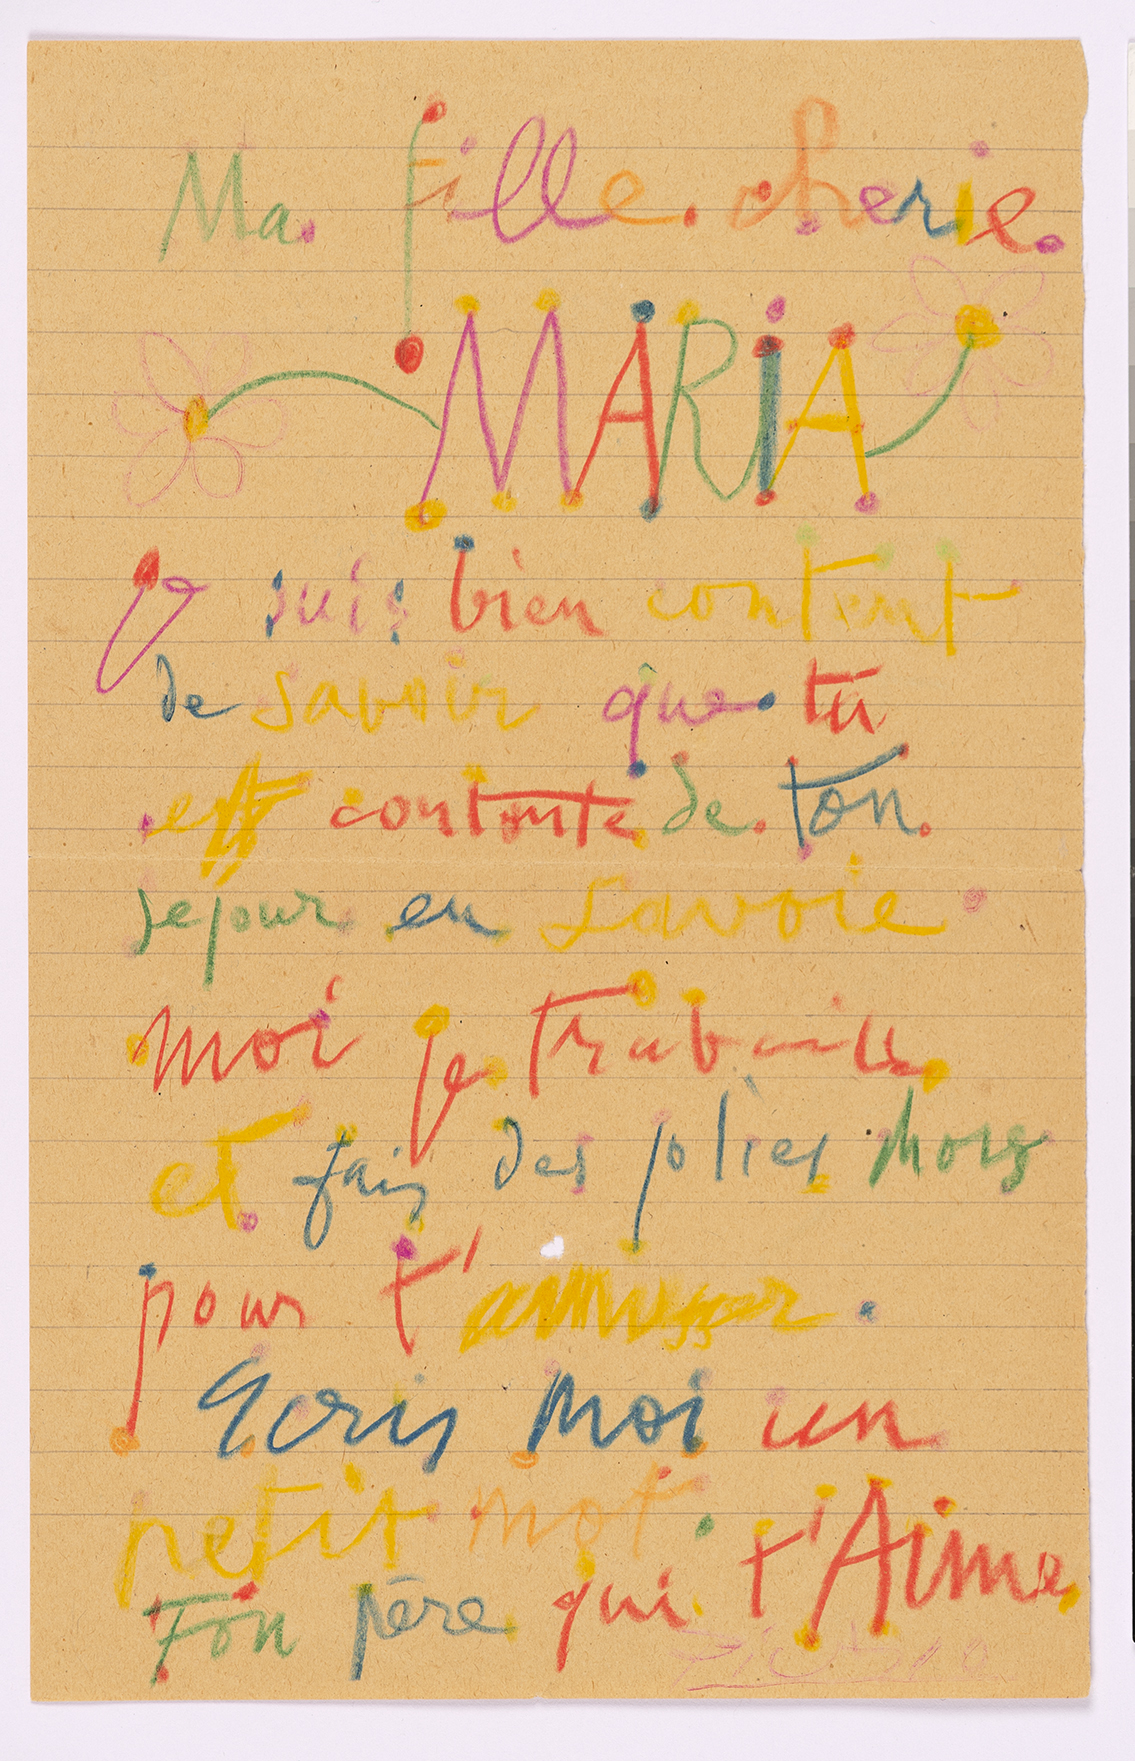 Ma. fille. cherie.
MARIA
Je suis bien content
de savoir que tu
est contente de. ton.
sejour en Savoie
moi je travaille
et fais des jolies
pour t'amuser.
Ecris moi un
petit mot.
Ton père qui t'Aime
Picasso